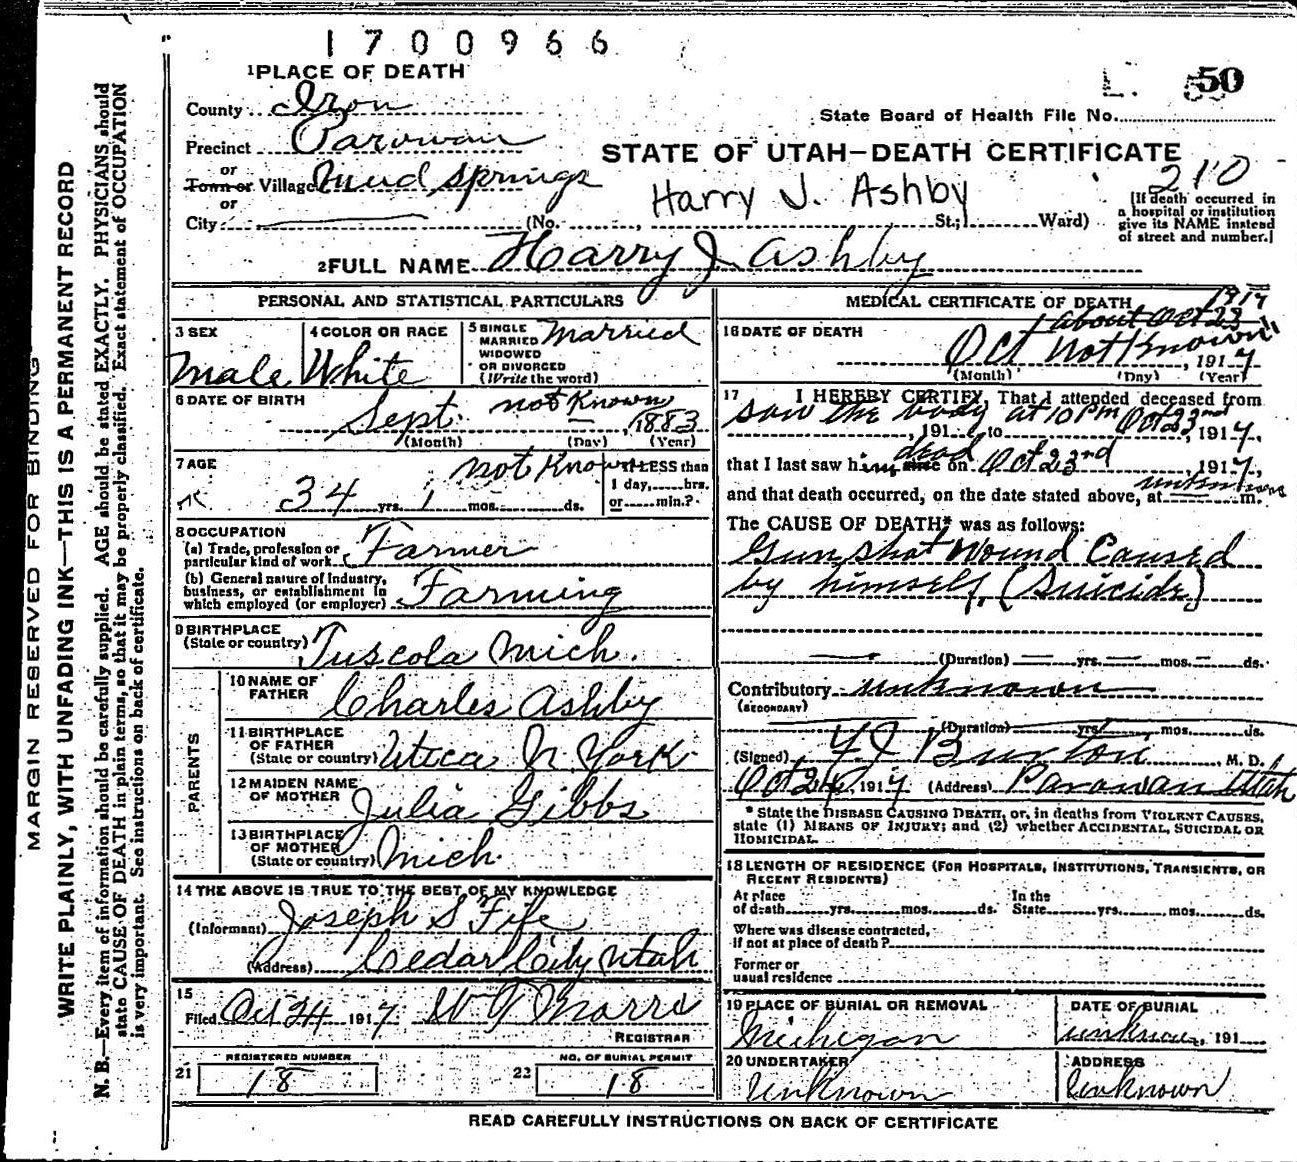 1700966
1 PLACE OF DEATH
L. 50
County Iron
State Board of Health File No.
Precinct Parowan
STATE OF UTAH—DEATH CERTIFICATE
or
210
Town or Village Mud Springs
Harry J. Ashby
or
City (No. St; Ward)
[If death occurred in
a hospital or institution
give its NAME instead
of street and number.]
2 FULL NAME Harry J Ashby
PERSONAL AND STATISTICAL PARTICULARS
3 SEX
Male
4 COLOR OR RACE
White
5 SINGLE
MARRIED
WIDOWED
OR DIVORCED
(Write the word)
Married
6 DATE OF BIRTH
Sept. not Known 1883
(Month) (Day) (Year)
7 AGE
not Known
34 yrs. 1 mos. ds.
If LESS than
1 day, hrs.
or min.?
8 OCCUPATION
(a) Trade, profession or
particular kind of work Farmer
(b) General nature of Industry,
business, or establishment in
which employed (or employer) Farming
9 BIRTHPLACE
(State or country) Tuscola Mich.
PARENTS
10 NAME OF
FATHER Charles Ashby
11 BIRTHPLACE
OF FATHER
(State or country) Utica N York
12 MAIDEN NAME
OF MOTHER Julia Gibbs
13 BIRTHPLACE
OF MOTHER
(State or country) Mich.
14 THE ABOVE IS TRUE TO THE BEST OF MY KNOWLEDGE
(Informant) Joseph S Fife
(Address) Cedar City Utah
15
Filed Oct 24 1917
REGISTRAR
REGISTERED NUMBER
21 18
NO. OF BURIAL PERMIT
22 18
MEDICAL CERTIFICATE OF DEATH
1917
about Oct 23
16 DATE OF DEATH
Oct not Known, 1917
(Month) (Day) (Year)
17 I HEREBY CERTIFY, That I attended deceased from
saw the body at 10 PM Oct 23rd
, 191 to , 1917,
dead
that I last saw him alive on Oct 23rd, 1917,
unknown
and that death occurred, on the date stated above, at m.
The CAUSE OF DEATH* was as follows:
Gun shot Wound Caused
by himself, (Suicide)
(Duration) yrs. mos. ds.
Contributory unknown
(SECONDARY)
(Duration) yrs. mos. ds.
(Signed) Burton, M. D.
Oct 24, 1917 (Address) Parowan Utah
* State the DISEASE CAUSING DEATH, or, in deaths from VIOLENT CAUSES,
state (1) MEANS OF INJURY; and (2) whether ACCIDENTAL, SUICIDAL OR
HOMICIDAL.
18 LENGTH OF RESIDENCE (FOR HOSPITALS, INSTITUTIONS, TRANSIENTS, OR
RECENT RESIDENTS)
At place
of death yrs. mos. ds.
In the
State yrs. mos. ds.
Where was disease contracted,
if not at place of death?
Former or
usual residence
19 PLACE OF BURIAL OR REMOVAL
Michigan
DATE OF BURIAL
unknown, 191
20 UNDERTAKER
Unknown
ADDRESS
Unknown
READ CAREFULLY INSTRUCTIONS ON BACK OF CERTIFICATE
MARGIN RESERVED FOR BINDING
WRITE PLAINLY, WITH UNFADING INK—THIS IS A PERMANENT RECORD
N. B.—Every item of information should be carefully supplied. AGE should be stated EXACTLY. PHYSICIANS should
state CAUSE OF DEATH in plain terms, so that it may be properly classified. Exact statement of OCCUPATION
is very important. See instructions on back of certificate.